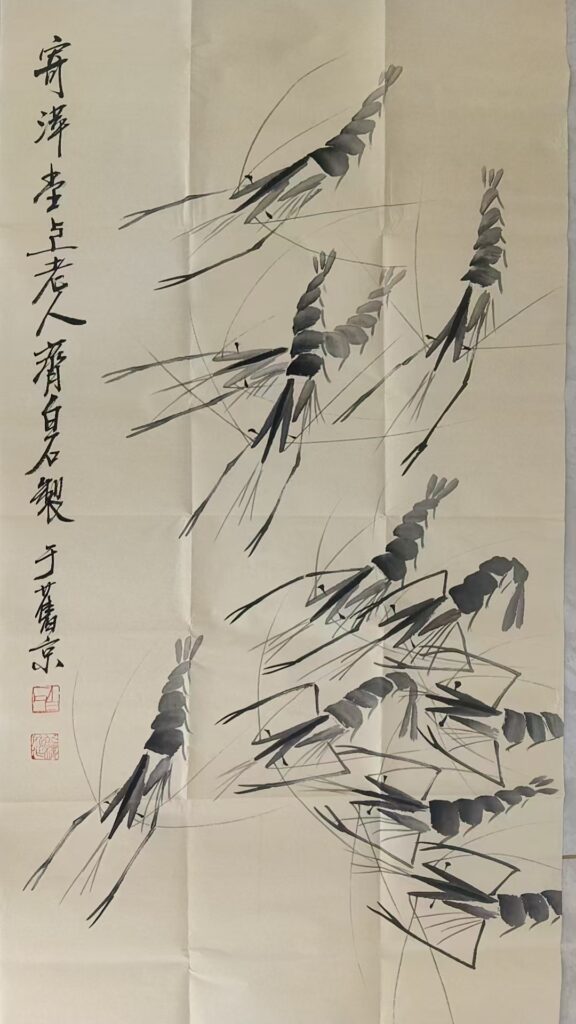 寄萍堂上老人齊白石製于舊京